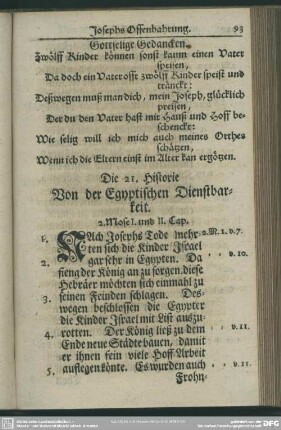 Josephs Offenbahrung. 93
Gottselige Gedancken.
Zwölff Kinder können sonst kaum einen Vater
speisen,
Da doch ein Vater offt zwölff Kinder speist und
tränckt:
Deßwegen muß man dich, mein Joseph, glücklich
preisen,
Der du den Vater hast mit Hauß und Hoff be-
schenckt:
Wie selig will ich mich auch meines Orthes
schätzen,
Wenn ich die Eltern einst im Alter kan ergötzen.
Die 21. Historie
Von der Egyptischen Dienstbar-
keit.
2. Mose I. und II. Cap.
1. NAch Josephs Tode mehr- 2. M. 1. v. 7.
ten sich die Kinder Israel
2. gar sehr in Egypten. Da v. 10.
sieng der König an zu sorgen, diese
Hebräer möchten sich einmahl zu
3. seinen Feinden schlagen. Des-
wegen beschlossen die Egypter
die Kinder Israel mit List auszu-
4. rotten. Der König ließ zu dem v. 11
Ende neue Städte bauen, damit
er ihnen fein viele Hoff Arbeit
5. auflegen könte. Es wurden auch v. 11
Frohn-